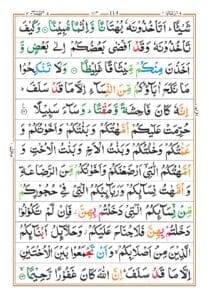 شَيْـًٔا ؕ اَتَاْخُذُوْنَهٗ بُهْتَانًا وَّ اِثْمًا مُّبِيْنًا ۝ وَ كَيْفَ
تَاْخُذُوْنَهٗ وَ قَدْ اَفْضٰى بَعْضُكُمْ اِلٰى بَعْضٍ وَّ
اَخَذْنَ مِنْكُمْ مِّيْثَاقًا غَلِيْظًا ۝ وَ لَا تَنْكِحُوْا
مَا نَكَحَ اٰبَآؤُكُمْ مِّنَ النِّسَآءِ اِلَّا مَا قَدْ سَلَفَ ؕ
اِنَّهٗ كَانَ فَاحِشَةً وَّ مَقْتًا ؕ وَ سَآءَ سَبِيْلًا ۝
حُرِّمَتْ عَلَيْكُمْ اُمَّهٰتُكُمْ وَ بَنٰتُكُمْ وَ اَخَوٰتُكُمْ وَ
عَمّٰتُكُمْ وَ خٰلٰتُكُمْ وَ بَنٰتُ الْاَخِ وَ بَنٰتُ الْاُخْتِ وَ
اُمَّهٰتُكُمُ الّٰتِيْۤ اَرْضَعْنَكُمْ وَ اَخَوٰتُكُمْ مِّنَ الرَّضَاعَةِ
وَ اُمَّهٰتُ نِسَآئِكُمْ وَ رَبَآئِبُكُمُ الّٰتِيْ فِيْ حُجُوْرِكُمْ
مِّنْ نِّسَآئِكُمُ الّٰتِيْ دَخَلْتُمْ بِهِنَّ ؗ فَاِنْ لَّمْ تَكُوْنُوْا
دَخَلْتُمْ بِهِنَّ فَلَا جُنَاحَ عَلَيْكُمْ ؗ وَ حَلَآئِلُ اَبْنَآئِكُمُ
الَّذِيْنَ مِنْ اَصْلَابِكُمْ ۙ وَ اَنْ تَجْمَعُوْا بَيْنَ الْاُخْتَيْنِ
اِلَّا مَا قَدْ سَلَفَ ؕ اِنَّ اللّٰهَ كَانَ غَفُوْرًا رَّحِيْمًا ۝